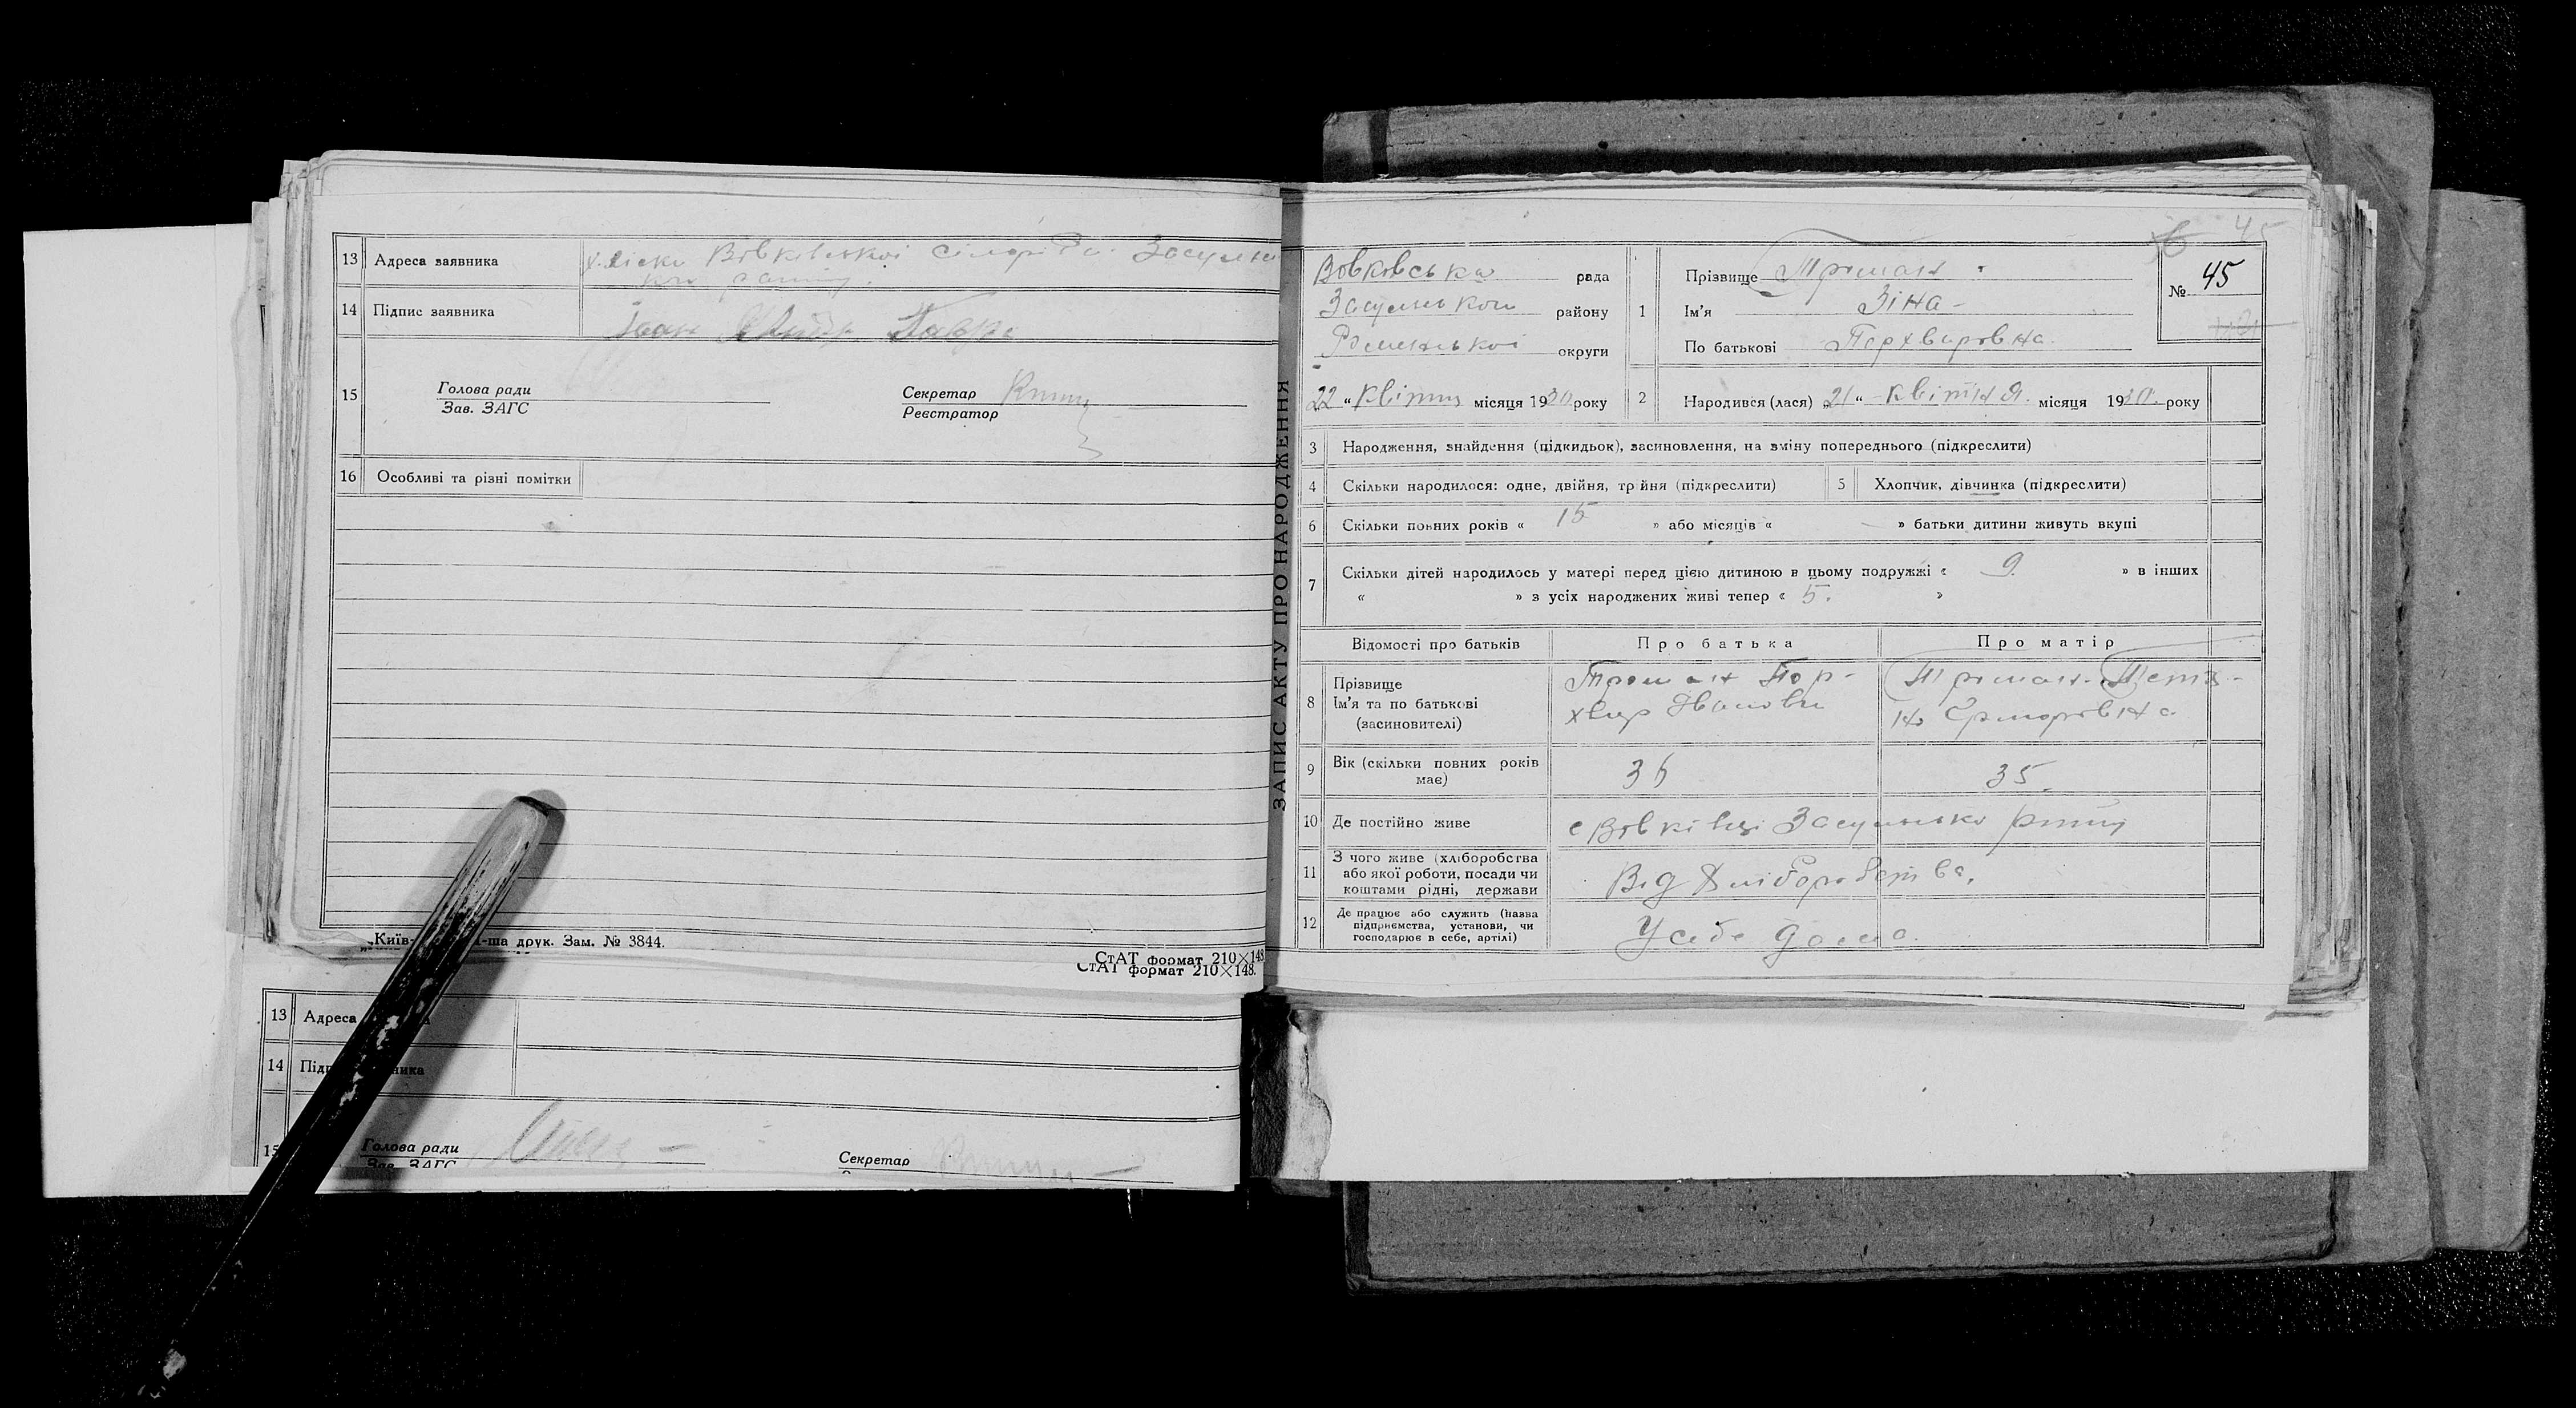 13 Адреса заявника Вовківської сільради Засульсь
14 Підпис заявника
15 Голова ради
Зав. ЗАГС
Секретар
Реєстратор
16 Особливі та різні помітки
1-ша друк. Зам. № 3844.
СтАТ формат 210×148
СтАТ формат 210×148.
13 Адреса
14
15 Голова ради
Зав. ЗАГС
Секретар
ЗАПИС АКТУ ПРО НАРОДЖЕННЯ
45
Вовковська рада
Засульського району
Роменської округи
22 „ квітня місяця 1930 року
1 Прізвище Троман
Ім'я Зіна
По батькові Порхвировна
№ 45
2 Народився (лася) „21“ квітня місяця 1930 року
3 Народження, знайдення (підкидьок), засиновлення, на зміну попереднього (підкреслити)
4 Скільки народилося: одне, двійня, трійня (підкреслити)
5 Хлопчик, дівчинка (підкреслити)
6 Скільки повних років « 15 » або місяців « — » батьки дитини живуть вкупі
7 Скільки дітей народилось у матері перед цією дитиною в цьому подружжі « 9. » в інших
« » з усіх народжених живі тепер « 5. »
Відомості про батьків Про батька Про матір
8 Прізвище
Ім'я та по батькові
(засновителі)
Троман Пор-
хвир Иванович
Троман Тетя-
на
9 Вік (скільки повних років
має) 36 35.
10 Де постійно живе с Вовківці Засульсько району
11 З чого живе (хліборобства
або якої роботи, посади чи
коштами рідні, держави
Від Хліборобства.
12 Де працює або служить (назва
підприємства, установи, чи
господарює в себе, артілі)
У себе дома.